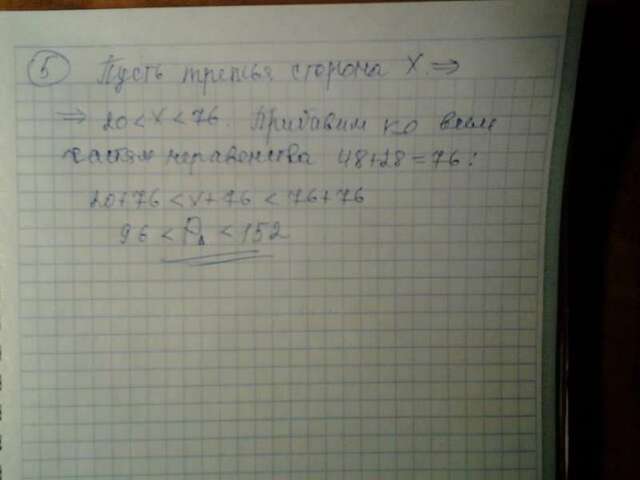 5 Пусть третья сторона X. ⇒
⇒ 20 < X < 76. Прибавим ко всем
частям неравенства 48+28=76:
20+76 < X+76 < 76+76
96 < P△ < 152